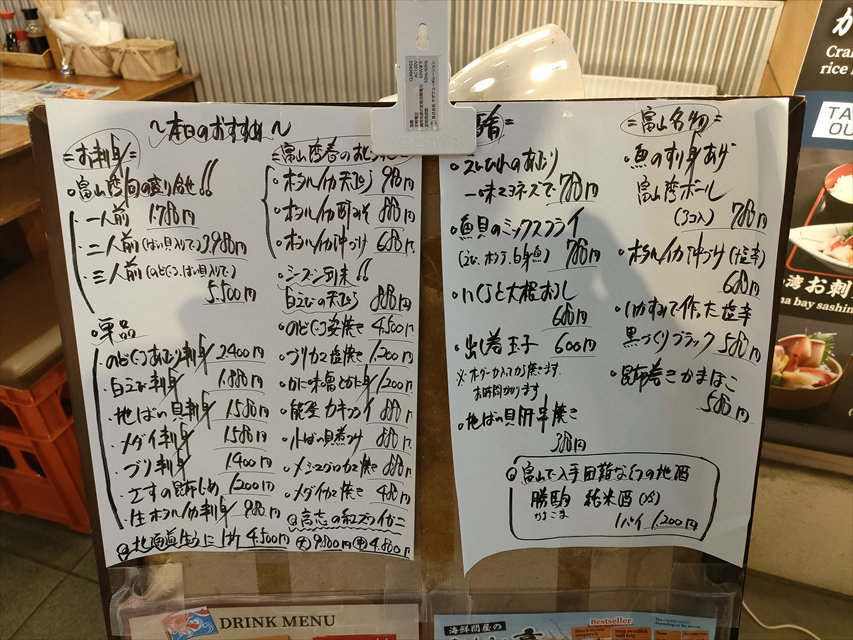 ～本日のおすすめ～
=お刺身=
・富山湾向の盛り合せ!!
一人前 1,780円
二人前(ばい貝入りで)3,980円
三人前(のどぐろ、ばい貝入りで)
5,500円
・単品
・のどぐろあぶり刺身 2,400円
・白えび刺身 1,880円
・地ばい貝刺身 1,580円
・メダイ刺身 1,580円
・ブリ刺身 1,400円
・さすの昆布じめ 1,200円
・生ホタルイカ刺身 980円
◎北海道生うに 1折 4,500円
=富山湾春の
・ホタルイカ天ぷら 980円
・ホタルイカ酢みそ 880円
・ホタルイカ沖づけ 680円
・シーズン到来!!
白えびの天ぷら 880円
・のどぐろ姿焼き 4,500円
・ブリカマ塩焼き 1,200円
・かに味噌とかに身 1,200円
・能登カキフライ 880円
・小ばい貝煮つけ 880円
・メジマグロカマ焼き 880円
・メダイカマ焼き 480円
◎高志の紅ズワイガニ
(大)9,800円(中)4,800円
肴=
・えいひれのあぶり
一味マヨネーズで 780円
・魚貝のミックスフライ
(えび、ホタテ、白身魚) 780円
・いくらと大根おろし
680円
・出し巻玉子 600円
※オーダーかかってから焼きます
お時間かかります
・地ばい貝肝串焼き
380円
=富山名物=
・魚のすり身あげ
富山湾ボール
(3コ入) 780円
・ホタルイカ沖づけ(塩辛)
680円
・いかすみで作った塩辛
黒づくりブラック 580円
・昆布巻きかまぼこ
580円
◎富山で入手困難な幻の地酒
勝駒 純米酒
かちこま
1パイ 1,200円
DRINK MENU
海鮮問屋の
Bestseller
TA
OU
Cra
rice
湾お刺
na bay sashin